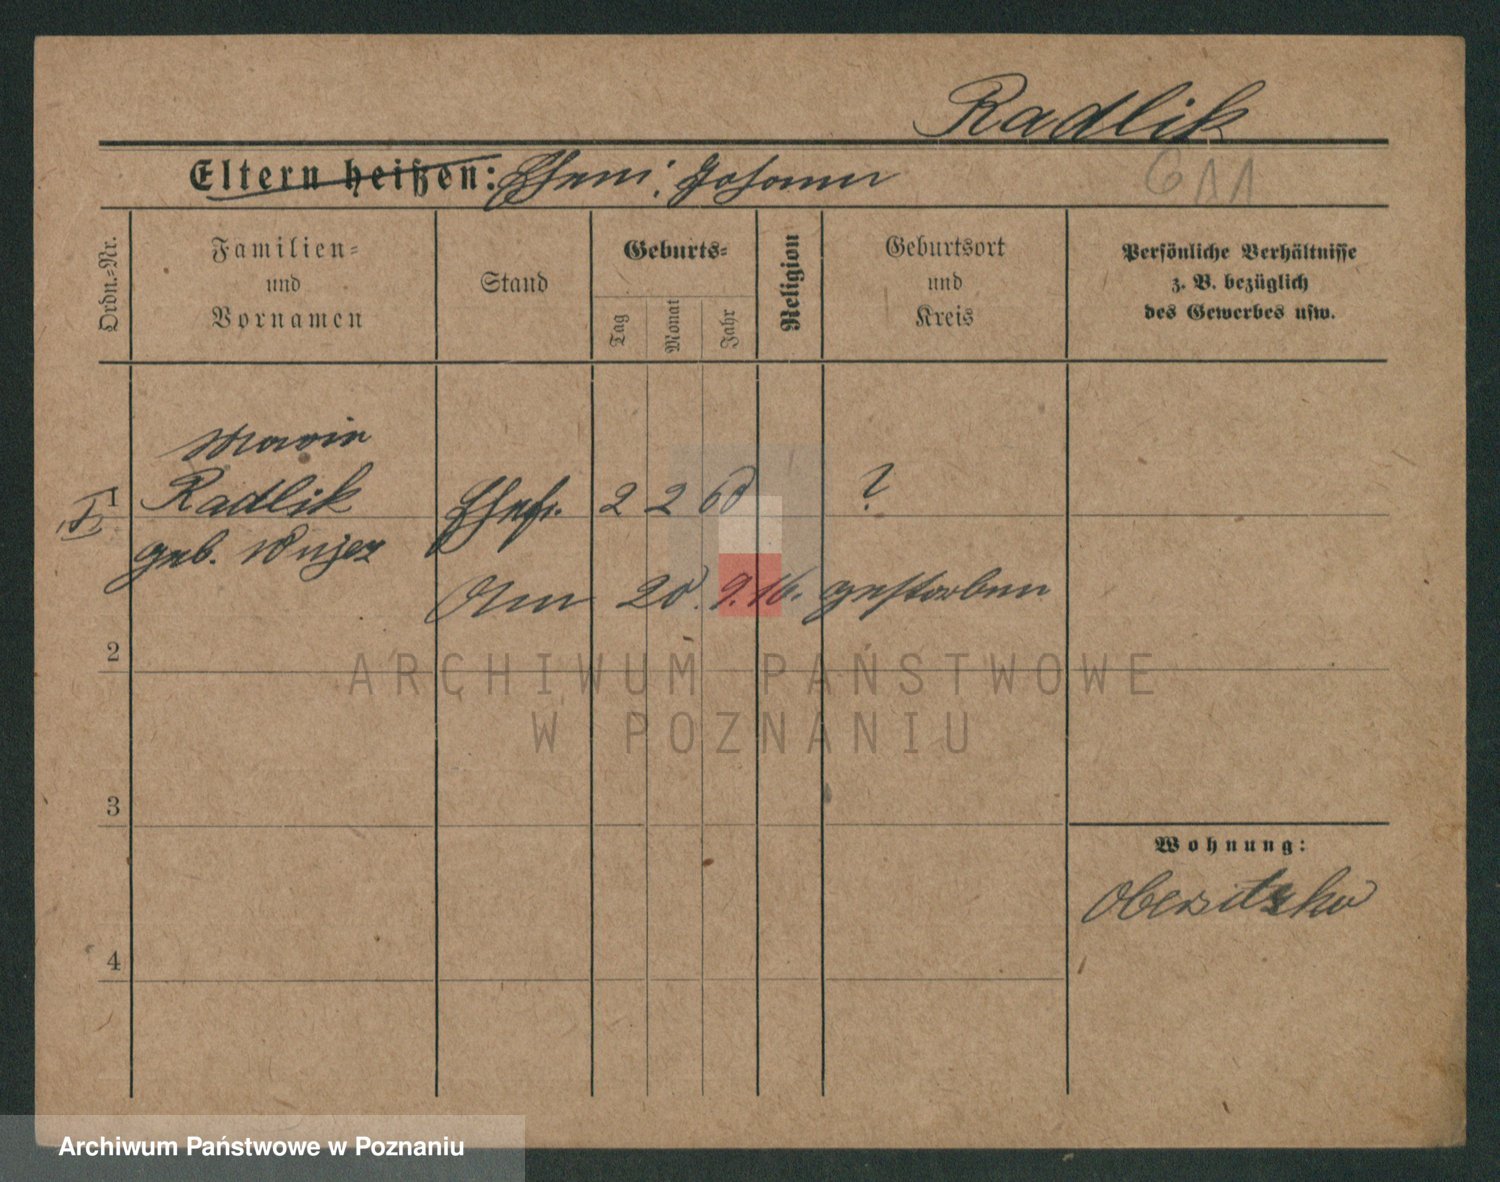 Radlik
Eltern heißen: Ehem: Johann
611
Ordn.-Nr.
Familien-
und
Vornamen
Stand
Geburts-
Tag
Monat
Jahr
Religion
Geburtsort
und
Kreis
Persönliche Verhältnisse
z. B. bezüglich
des Gewerbes usw.
Marie
1 Radlik Ehefr. 2 2 60 ?
geb. Wujez
Am 20. 9. 16. gestorben
2
ARCHIWUM PAŃSTWOWE
W POZNANIU
3
Wohnung:
Obersitzko
4
Archiwum Państwowe w Poznaniu